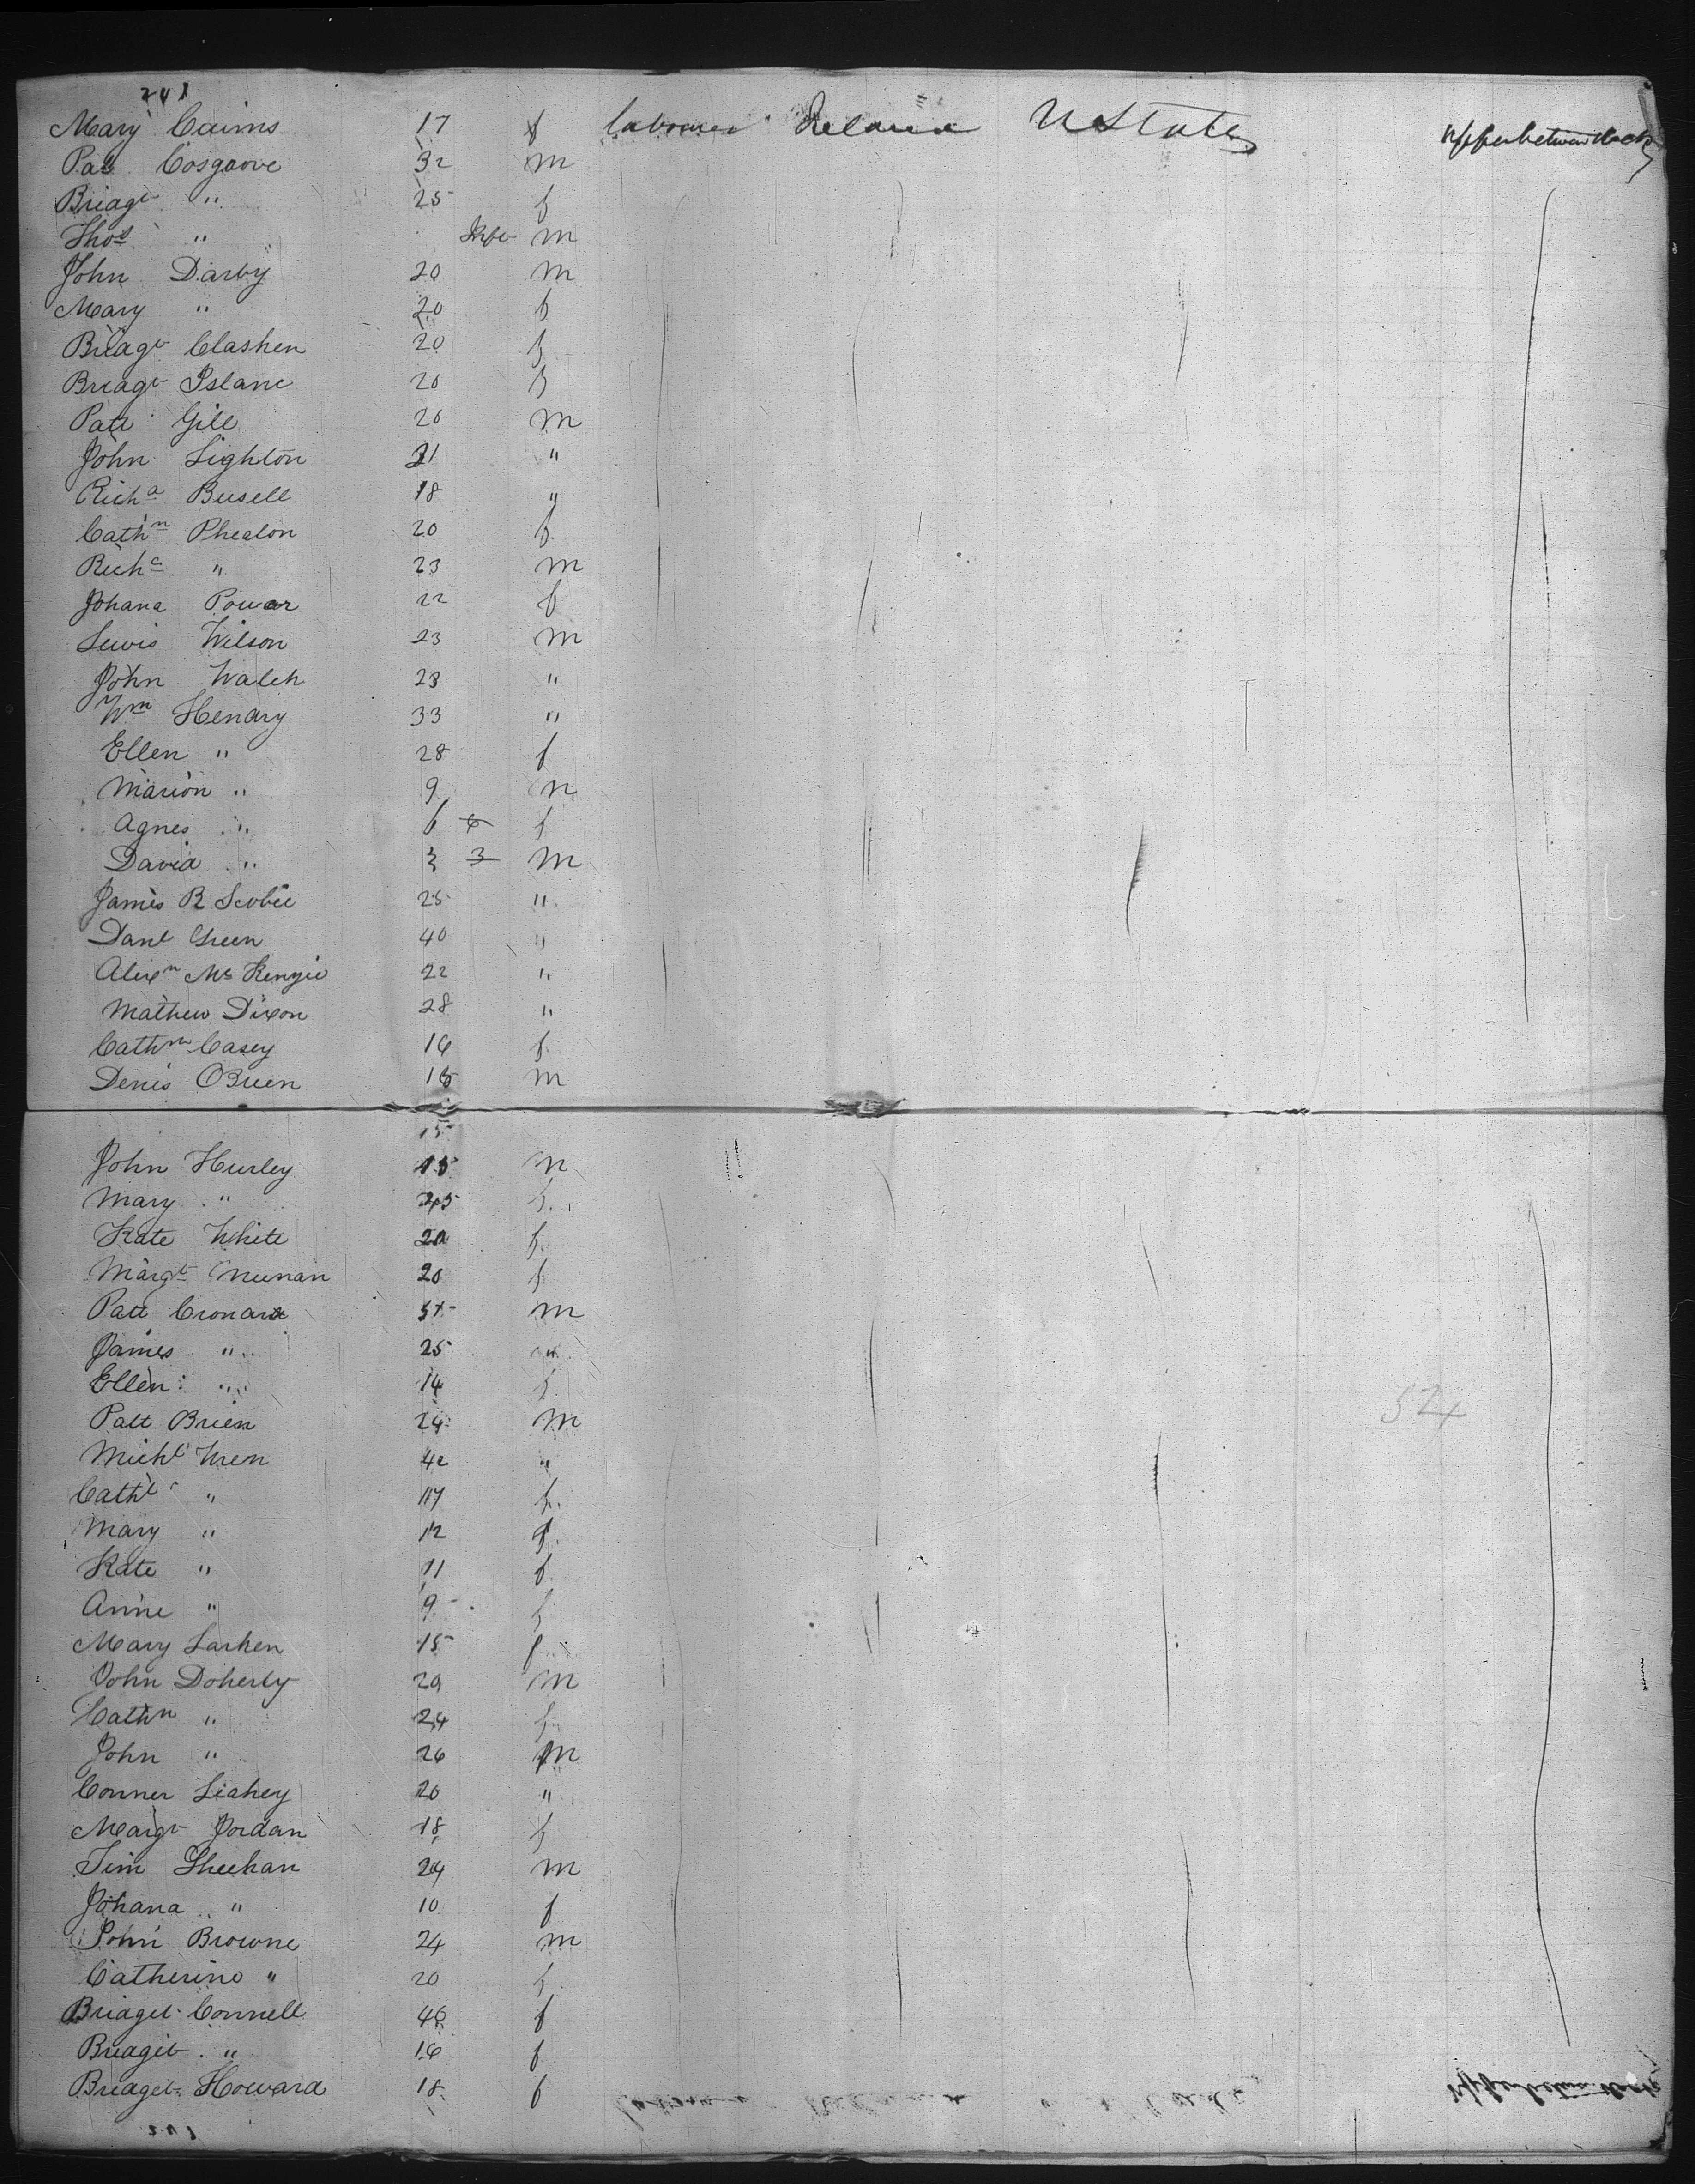 241
Mary Cairns 17 f labourer Ireland U States Upper between decks
Pat Cosgrove 32 m
Bridgt " 25 f
Thos " Infr m
John Darby 20 m
Mary " 20 f
Bridgt Clashen 20 f
Bridgt Islane 20 f
Patt Gill 20 m
John Lighton 21 "
Richd Busell 18 "
Cathn Phealon 20 f
Richd " 23 m
Johana Powar 22 f
Lewis Wilson 23 m
John Walch 23 "
Wm Henary 33 "
Ellen " 28 f
Marion " 9 m
Agnes " 6 6 f
David " 3 3 m
James R Scobie 25 "
Danl Green 40 "
Alexn McKenzie 22 "
Mathew Dixon 28 "
Cathn Casey 16 f
Denis OBrien 16 m
15
John Hurley 15 m
Mary " 25 f
Kate White 20 f
Margt Nunan 20 f
Patt m
James " 25 "
Ellen " 14 f
Patt Brien 24 m
Michl Wren 42 "
Cathl " 17 f
Mary " 12 f
Kate " 11 f
Anne " 9 f
Mary Larken 15 f
John Doherty 29 m
Cathn " 24 f
John " 26 m
Conner Leahey 20 "
Margt Jordan 18 f
Tim Sheehan 24 m
Johana " 10 f
John Browne 24 m
Catherine " 20 f
Bridget Connell 46 f
Bridget " 16 f
Bridget Howard 18 f labourer Ireland U States Upper between decks
241
524